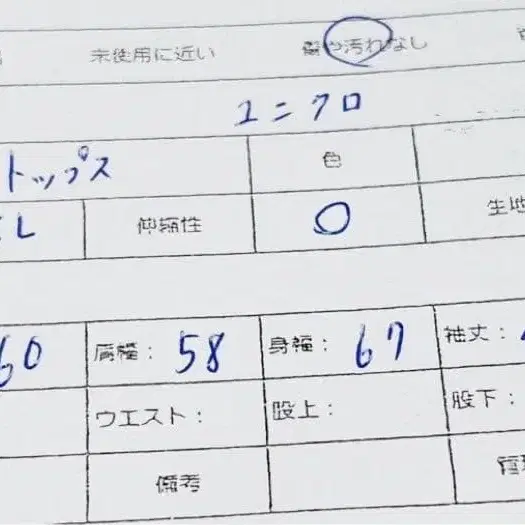 未使用に近い 傷や汚れなし
ユニクロ
トップス 色
L 伸縮性 ○ 生地
60 肩幅: 58 身幅: 67 袖丈:
ウエスト: 股上: 股下:
備考 管理